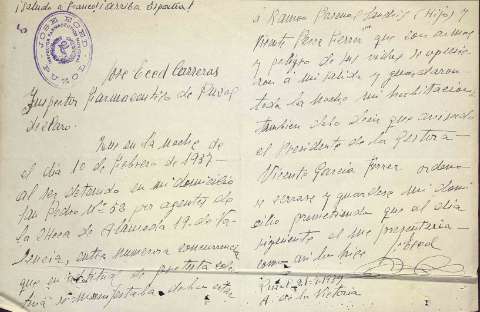 ¡Saludo a Franco! ¡Arriba España!
JOSE ECED
José Eced Carreras
Inspector Farmaceutico de Puzol
declaro.
Que en la noche de
el dia 10 de Febrero de 1937
al ser detenido en mi domicilio
San Pedro Nº 33 por agentes de
la checa de Alameda 19. de Va-
lencia, entre numerosa concurrencia
que en actitud de protesta
se manifestaba deben estar
á Ramon Pascual (Hijo) y
Vicente Perez Ferrer que con armas
y peligro de sus vidas se opusie-
ron a mi salida y guardaron
toda la noche mi habitacion,
tambien debo decir que avisado
el Presidente de la Gestora
Vicente Garcia Ferrer ordeno
se cerrase y guardese mi domi-
cilio prometiendo que al dia
siguiente el me presentaria
como asi lo hizo
J Eced
Puzol 21-7-1939
A. de la Victoria